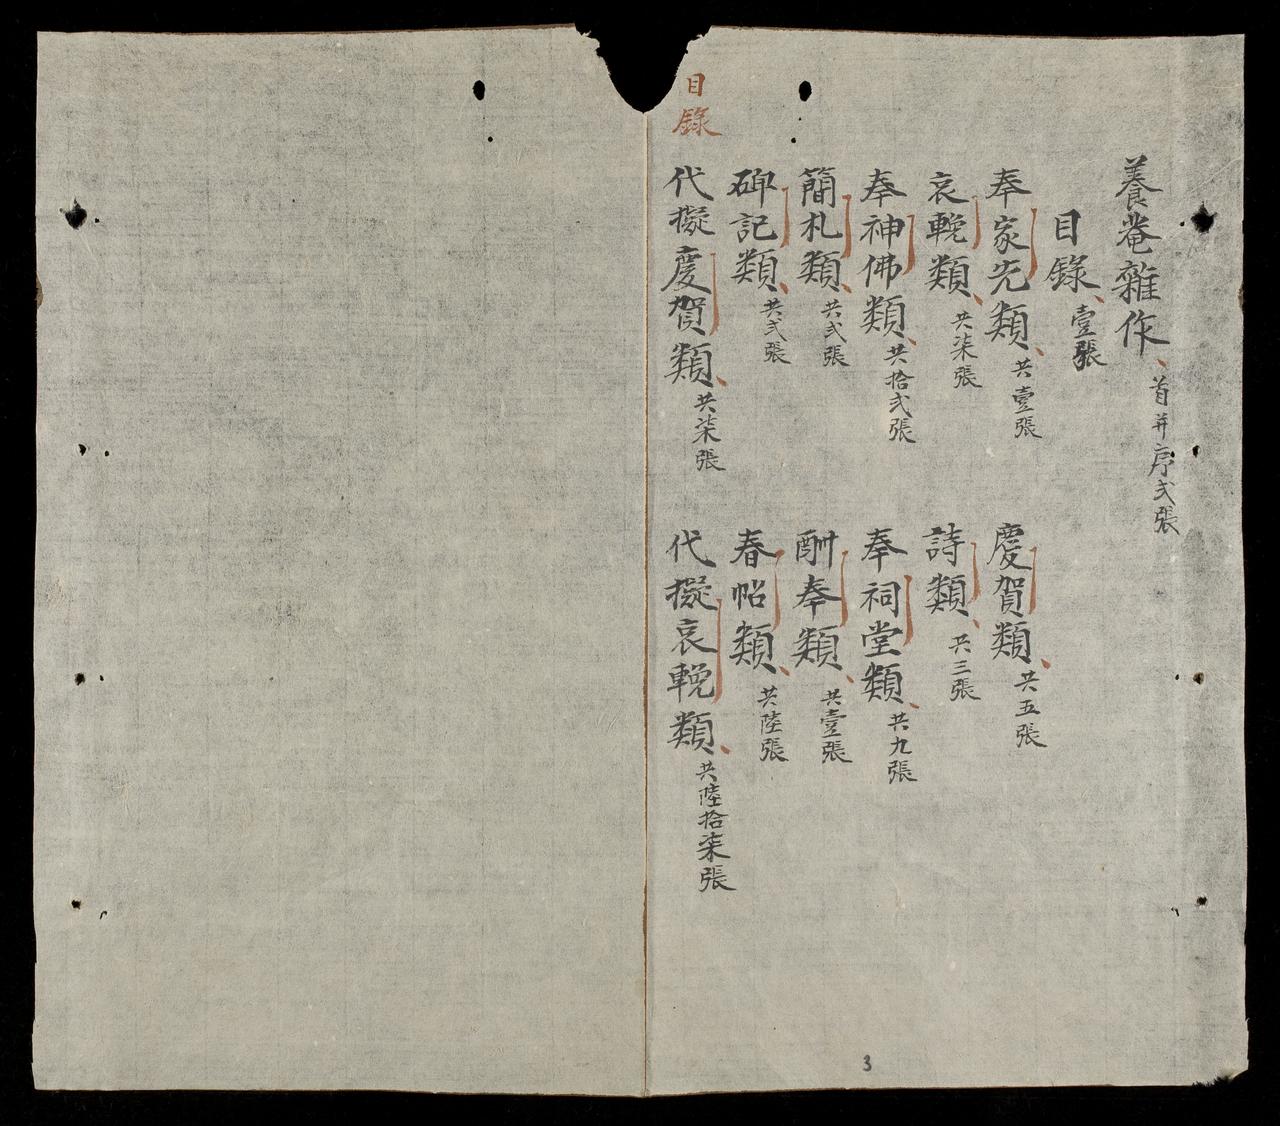 養菴雜作、首并序弍張
目錄、壹張
奉家先類、共壹張
慶賀類、共五張
哀輓類、共柒張
詩類、共三張
奉神佛類、共拾弍張
奉祠堂類、共九張
簡札類、共弍張
酬奉類、共壹張
碑記類、共弍張
春帖類、共陸張
代擬慶賀類、共柒張
代擬哀輓類、共陸拾柒張
目錄
3